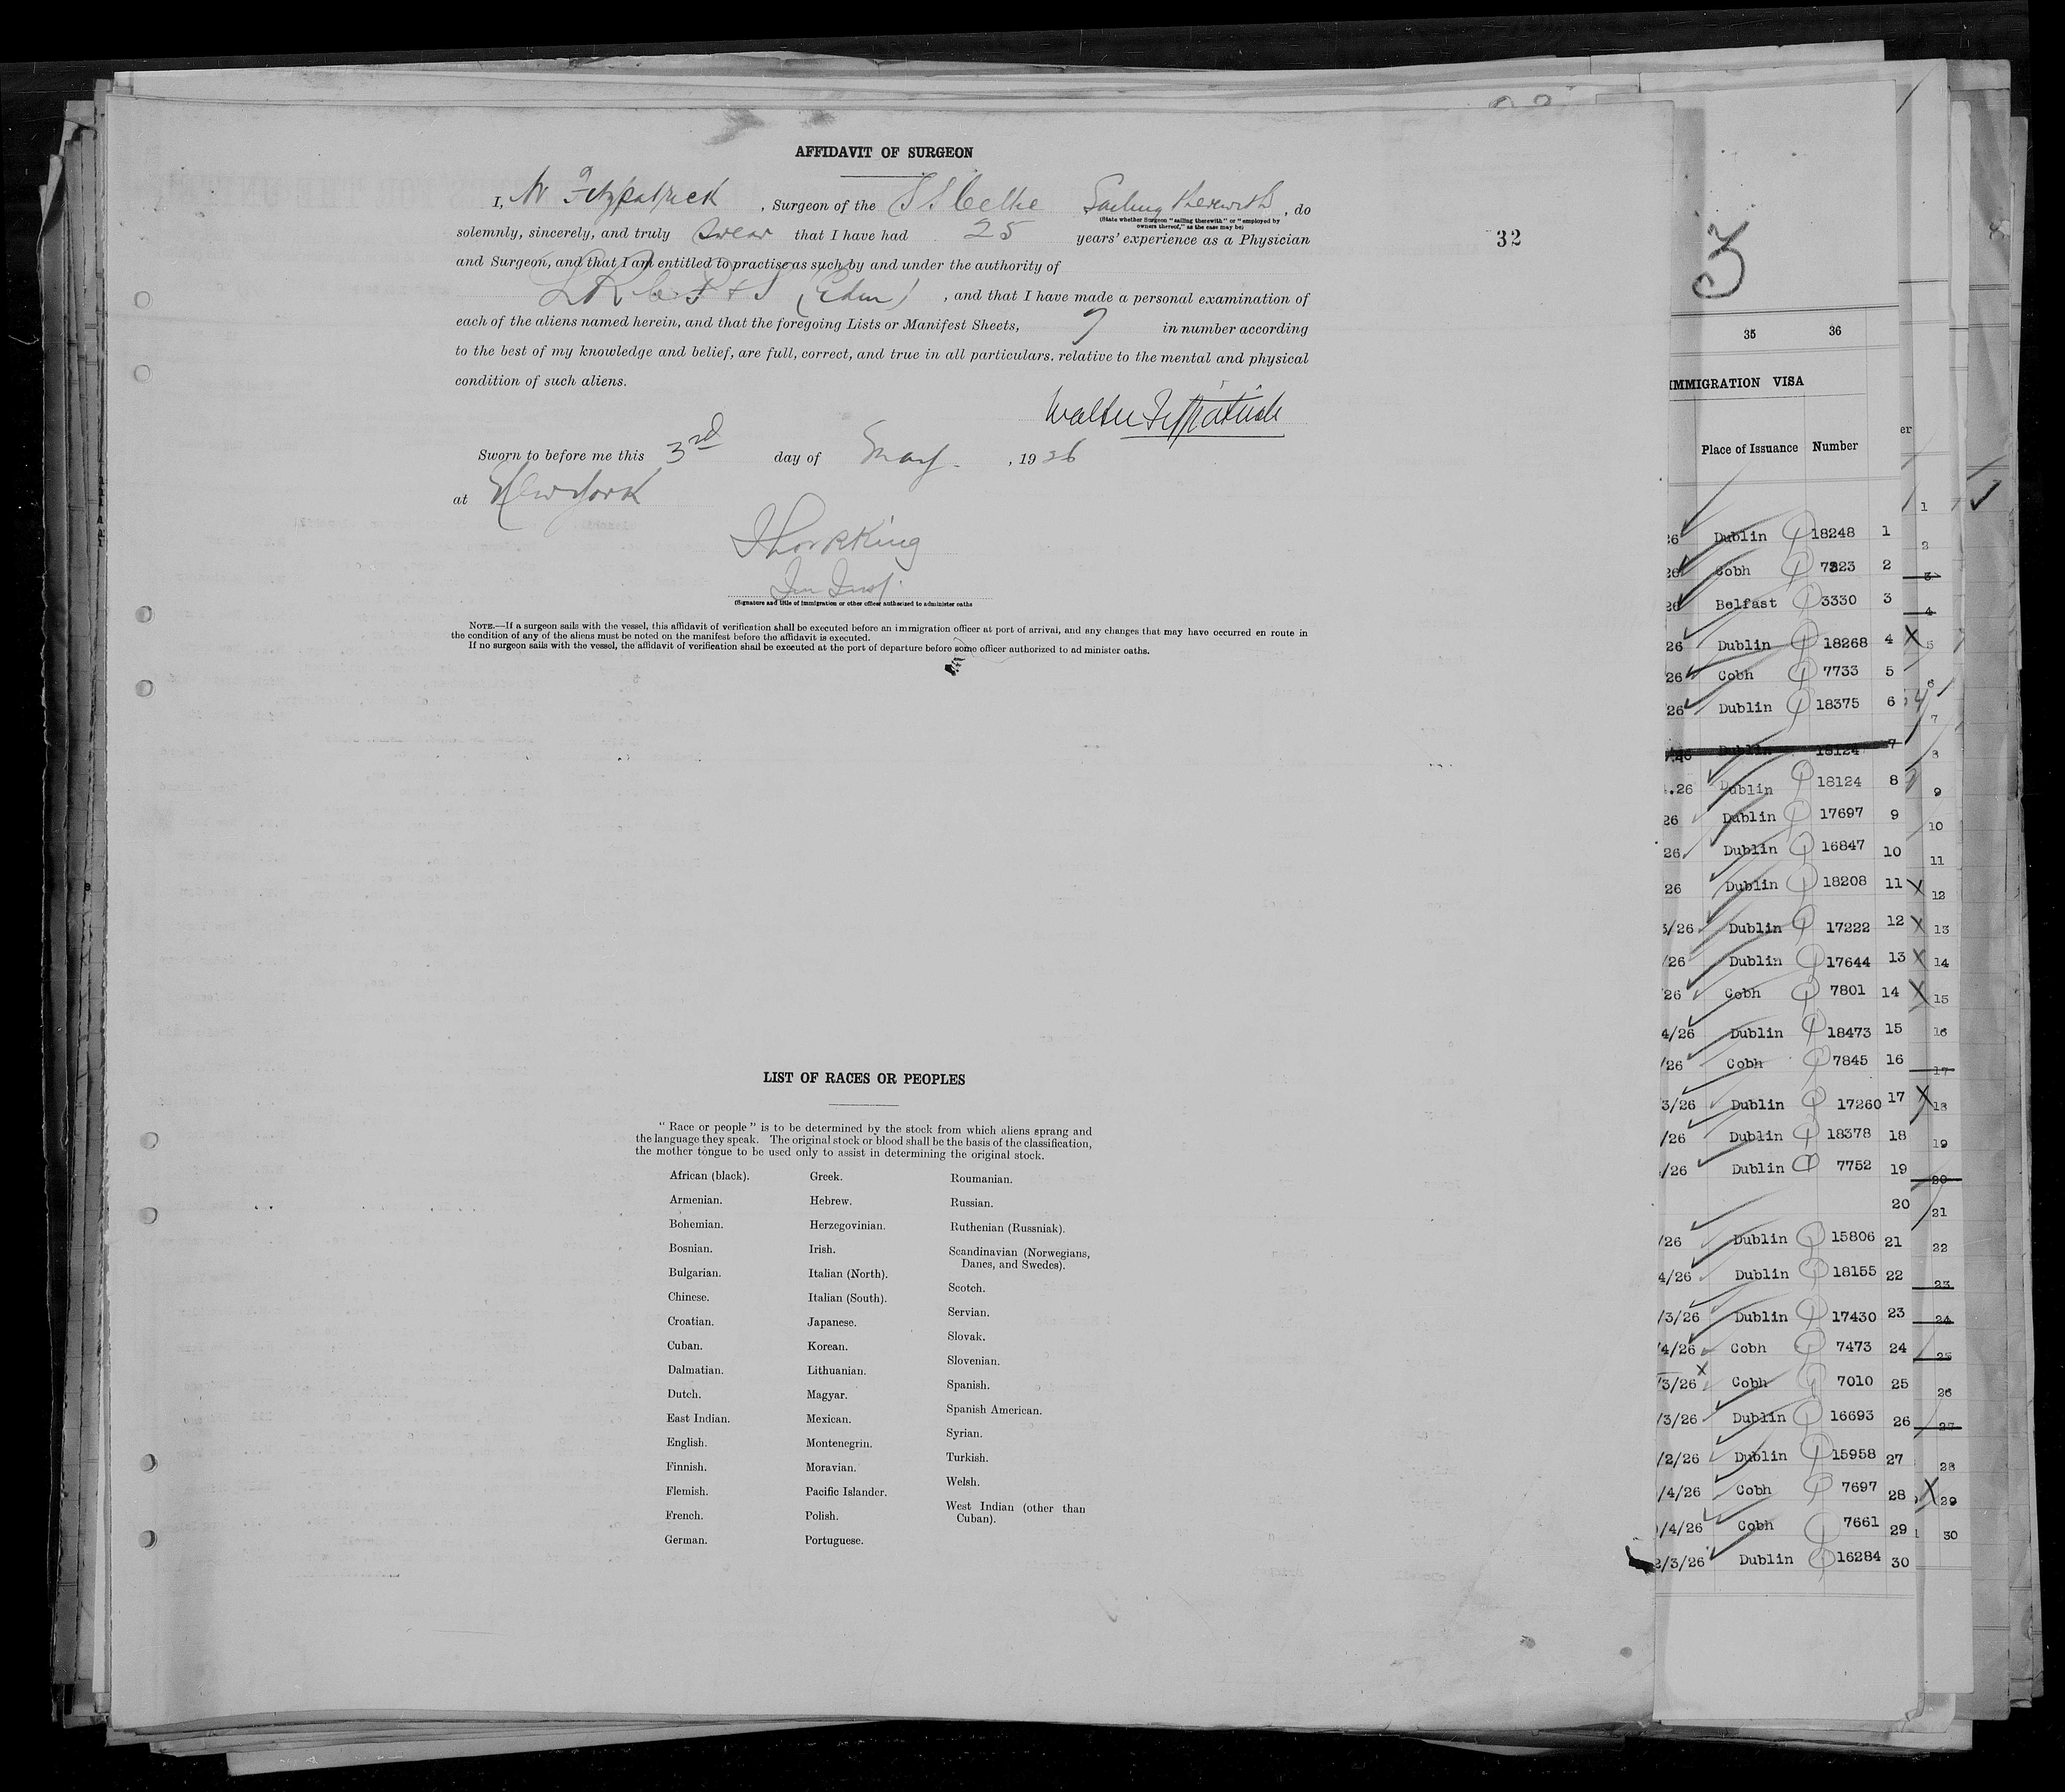 AFFIDAVIT OF SURGEON
I, W Fitzpatrick, Surgeon of the SS Celtic Sailing therewith, do
(State whether Surgeon "sailing therewith" or "employed by
owners thereof," as the case may be)
solemnly, sincerely, and truly swear that I have had 25 years' experience as a Physician
and Surgeon, and that I am entitled to practise as such by and under the authority of
LRC P & S (Edin), and that I have made a personal examination of
each of the aliens named herein, and that the foregoing Lists or Manifest Sheets, 7 in number according
to the best of my knowledge and belief, are full, correct, and true in all particulars, relative to the mental and physical
condition of such aliens.
Walter Fitzpatrick
Sworn to before me this 3rd day of May, 1926
at New York
(Signature and title of immigration or other officer authorized to administer oaths
NOTE.—If a surgeon sails with the vessel, this affidavit of verification shall be executed before an immigration officer at port of arrival, and any changes that may have occurred en route in
the condition of any of the aliens must be noted on the manifest before the affidavit is executed.
If no surgeon sails with the vessel, the affidavit of verification shall be executed at the port of departure before some officer authorized to ad minister oaths.
32
LIST OF RACES OR PEOPLES
"Race or people" is to be determined by the stock from which aliens sprang and
the language they speak. The original stock or blood shall be the basis of the classification,
the mother tongue to be used only to assist in determining the original stock.
African (black).
Armenian.
Bohemian.
Bosnian.
Bulgarian.
Chinese.
Croatian.
Cuban.
Dalmatian.
Dutch.
East Indian.
English.
Finnish.
Flemish.
French.
German.
Greek.
Hebrew.
Herzegovinian.
Irish.
Italian (North).
Italian (South).
Japanese.
Korean.
Lithuanian.
Magyar.
Mexican.
Montenegrin.
Moravian.
Pacific Islander.
Polish.
Portuguese.
Roumanian.
Russian.
Ruthenian (Russniak).
Scandinavian (Norwegians,
Danes, and Swedes).
Scotch.
Servian.
Slovak.
Slovenian.
Spanish.
Spanish American.
Syrian.
Turkish.
Welsh.
West Indian (other than
Cuban).
35 36
IMMIGRATION VISA
Place of Issuance Number
26 Dublin 18248 1
26 Cobh 7323 2
26 Belfast 3330 3
26 Dublin 18268 4
26 Cobh 7733 5
26 Dublin 18375 6
26 Dublin 18124 7
.26 Dublin 18124 8
26 Dublin 17697 9
26 Dublin 16847 10
26 Dublin 18208 11
3/26 Dublin 17222 12
/26 Dublin 17644 13
26 Cobh 7801 14
4/26 Dublin 18473 15
/26 Cobh 7845 16
3/26 Dublin 17260 17
/26 Dublin 18378 18
/26 Dublin 7752 19
20
/26 Dublin 15806 21
4/26 Dublin 18155 22
/3/26 Dublin 17430 23
/4/26 Cobh 7473 24
/3/26 Cobh 7010 25
/3/26 Dublin 16693 26
/2/26 Dublin 15958 27
/4/26 Cobh 7697 28
/4/26 Cobh 7661 29
2/3/26 Dublin 16284 30
er
1
2
3
4
5
6
7
8
9
10
11
12
13
14
15
16
17
18
19
20
21
22
23
24
25
26
27
28
29
30